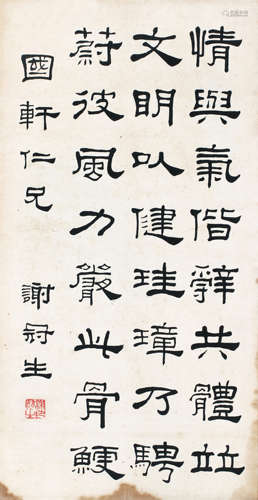 情與氣偕辭共體並
文明以健珪璋乃騁
蔚彼風力嚴此骨鯁
國軒仁兄
謝冠生